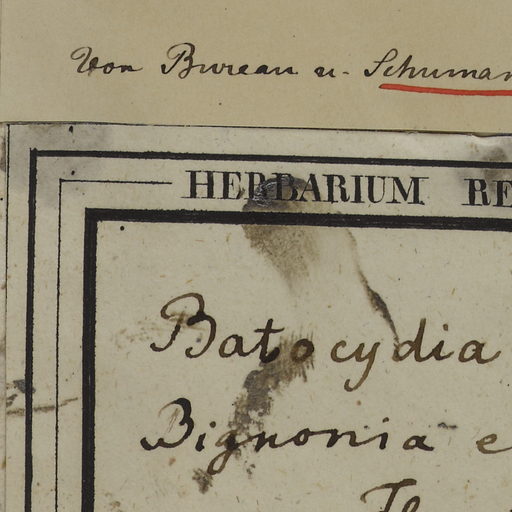 Von Bureau u. Schuman
HERBARIUM RE
Batocydia
Bignonia e